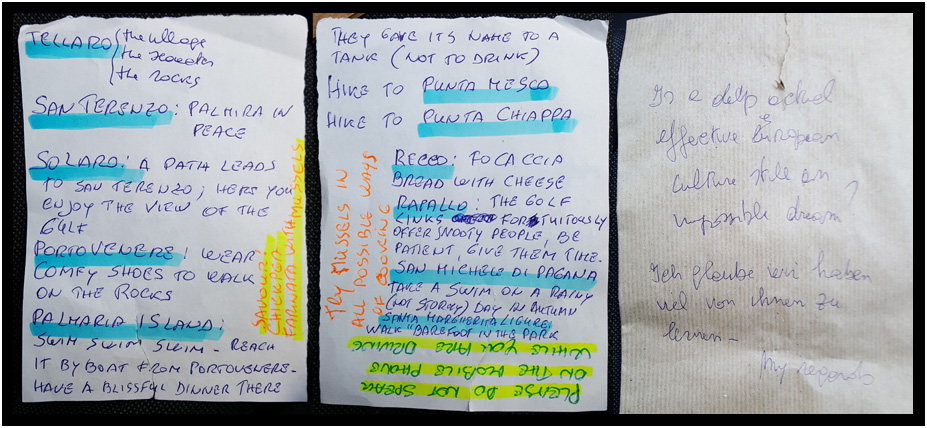 TELLARO { the village
the scometer
the rocks
SAN TERENZO: PALMIRA IN
PEACE
SOLARO: A PATH LEADS
TO SAN TERENZO; HERE YOU
ENJOY THE VIEW OF THE
GULF
PORTOVENERE: WEAR
COMFY SHOES TO WALK
ON THE ROCKS
PALMARIA ISLAND:
SWIM SWIM SWIM - REACH
IT BY BOAT FROM PORTOVENERE -
HAVE A BLISSFUL DINNER THERE
SAVOUR!
FARINATA WITH MUSSELS
THEY GAVE ITS NAME TO A
TANK (NOT TO DRINK)
HIKE TO PUNTA MESCO
HIKE TO PUNTA CHIAPPA
RECCO: FOCACCIA
BREAD WITH CHEESE
RAPALLO: THE GOLF
LINKS FORTUITOUSLY
OFFER SNOOTY PEOPLE, BE
PATIENT, GIVE THEM TIME -
SAN MICHELE DI PAGANA
TAKE A SWIM ON A RAINY
(NOT STORMY) DAY IN AUTUMN
SANTA MARGHERITA LIGURE:
WALK "BAREFOOT IN THE PARK
TRY MUSSELS IN
ALL POSSIBLE WAYS
OF COOKING
PLEASE DO NOT SPEAK
ON THE MOBILE PHONE
WHILE YOU ARE DRIVING
Is a deep actual
effective European
culture still an
impossible dream?
Ich glaube wir haben
viel von ihnen zu
lernen -
My regards